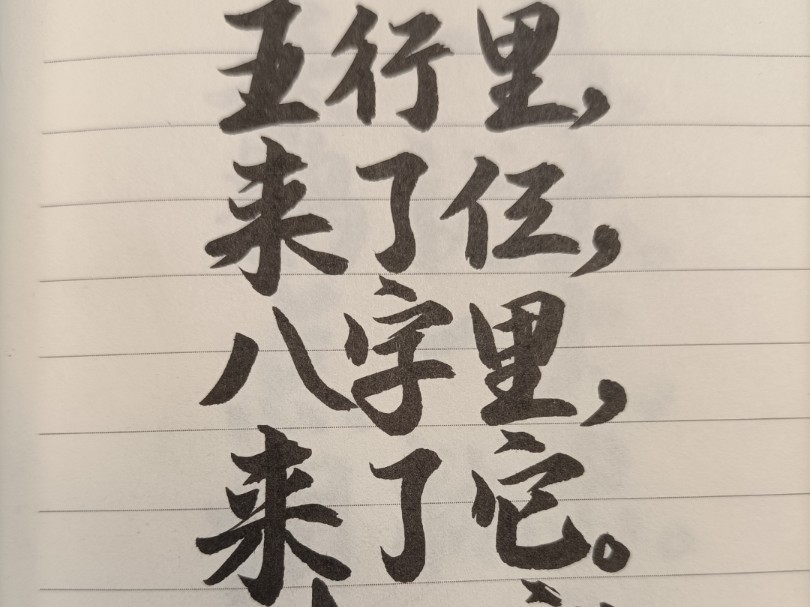 五行里,
来了,
八字里,
来了它。